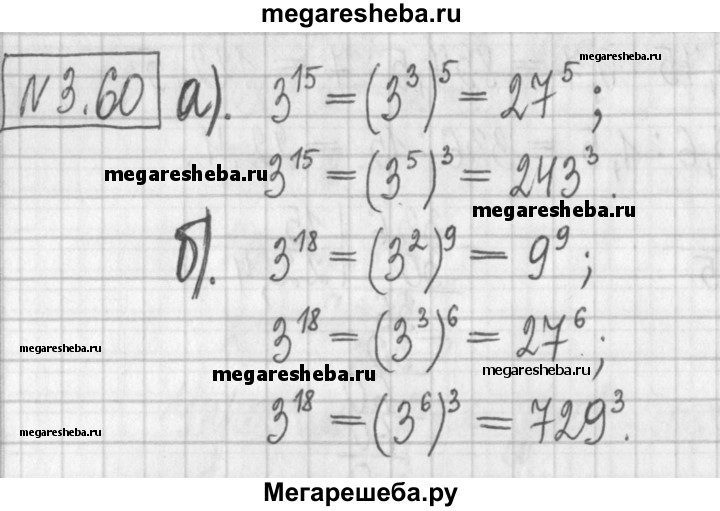 megaresheba.ru
megaresheba.ru
N 3.60 а). 3^15 = (3^3)^5 = 27^5 ;
3^15 = (3^5)^3 = 243^3.
megaresheba.ru
megaresheba.ru
б). 3^18 = (3^2)^9 = 9^9 ;
3^18 = (3^3)^6 = 27^6 ;
megaresheba.ru
megaresheba.ru
megaresheba.ru
3^18 = (3^6)^3 = 729^3.
megaresheba.ru
Мегарешеба.ру